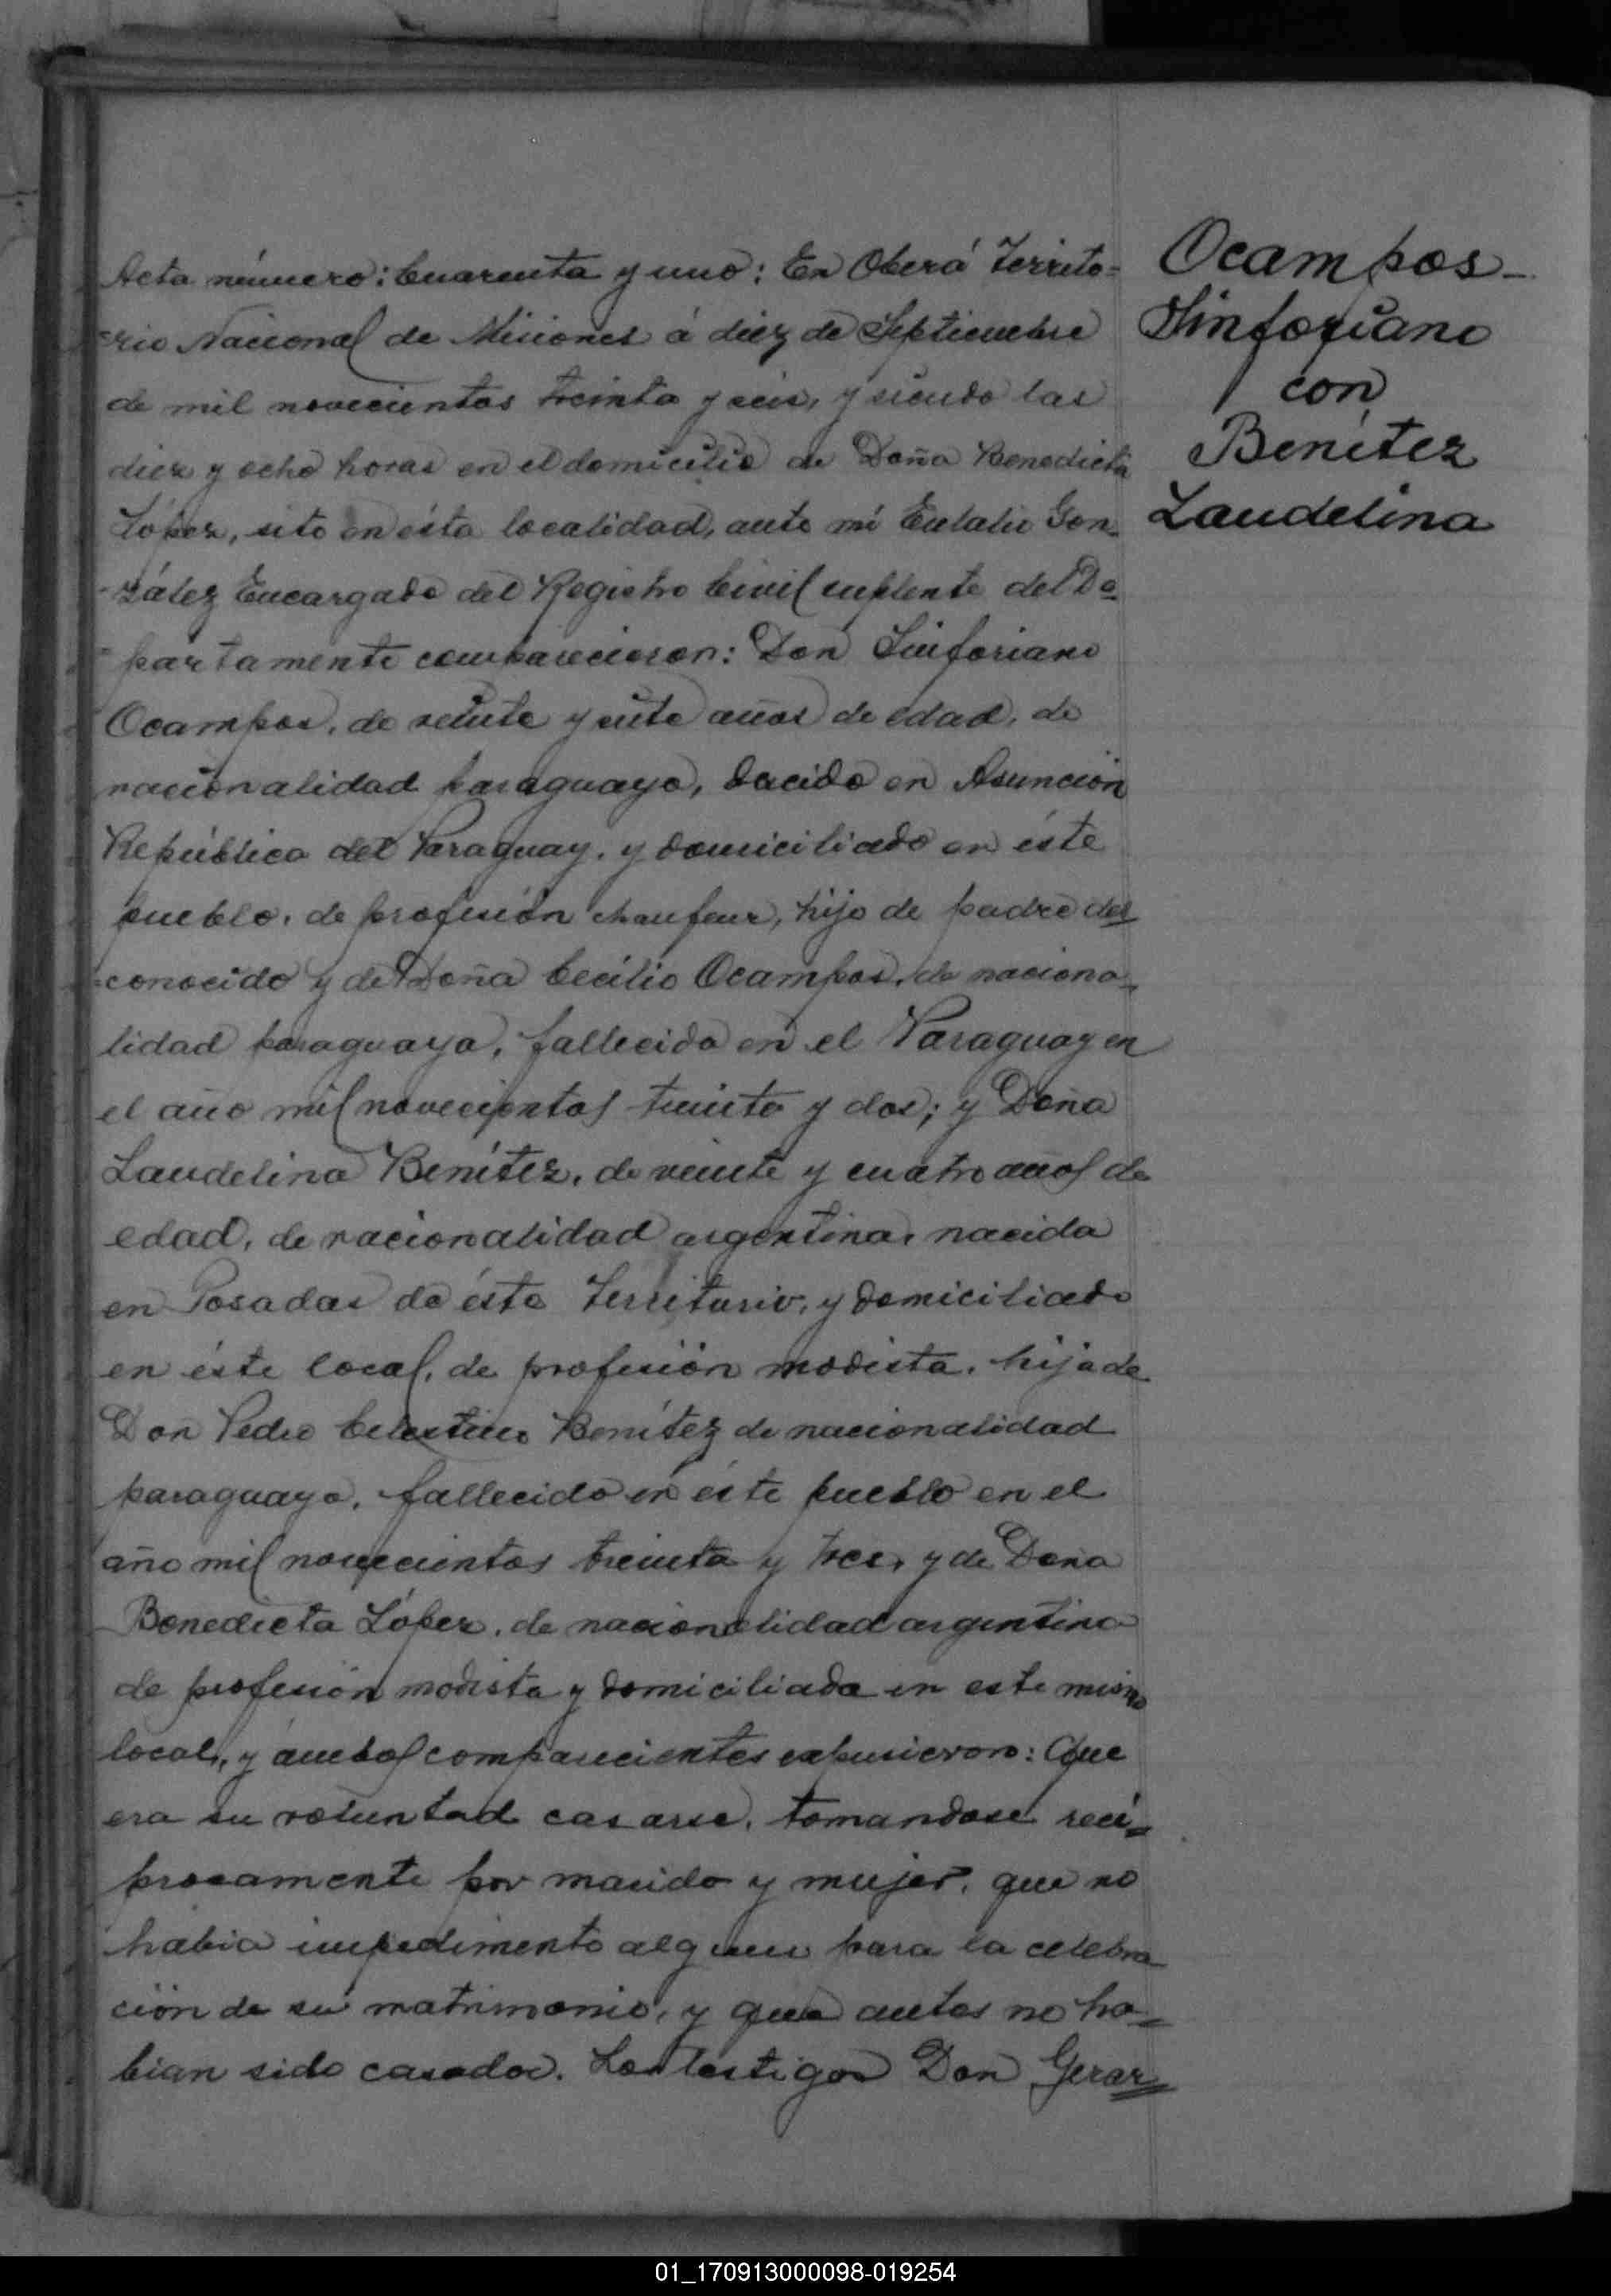 Acta número: Cuarenta y uno: En Oberá Territo=
=rio Nacional de Misiones á diez de Septiembre
de mil novecientos treinta y seis, y siendo las
diez y ocho horas en el domicilio de Doña Benedicta
López, sito en ésta localidad, ante mí Eulalio Gon=
-zález Encargado del Registro Civil suplente del De=
=partamento comparecieron: Don Sinforiano
Ocampos, de veinte y siete años de edad, de
nacionalidad paraguaya, nacido en Asunción
República del Paraguay, y domiciliado en éste
pueblo, de profesión chaufeur, hijo de padre des=
=conocido y de Doña Cecilia Ocampos, de naciona=
lidad paraguaya, fallecida en el Paraguay en
el año mil novecientos treinta y dos; y Doña
Laudelina Benítez, de veinte y cuatro años de
edad, de nacionalidad argentina, nacida
en Posadas de éste Territorio, y domiciliada
en éste local, de profesión modista, hija de
Don Pedro Celestino Benítez de nacionalidad
paraguaya, fallecido en éste pueblo en el
año mil novecientos treinta y tres, y de Doña
Benedicta López, de nacionalidad argentina
de profesión modista y domiciliada en este mismo
local, y ámbos comparecientes expusieron: Que
era su voluntad casarse, tomandose recí=
procamente por marido y mujer, que no
habia impedimento alguno para la celebra
ción de su matrimonio, y que antes no ha=
bian sido casados. Los testigos Don Gerar=
Ocampos-
Sinforiano
con
Benítez
Laudelina
01_170913000098-019254